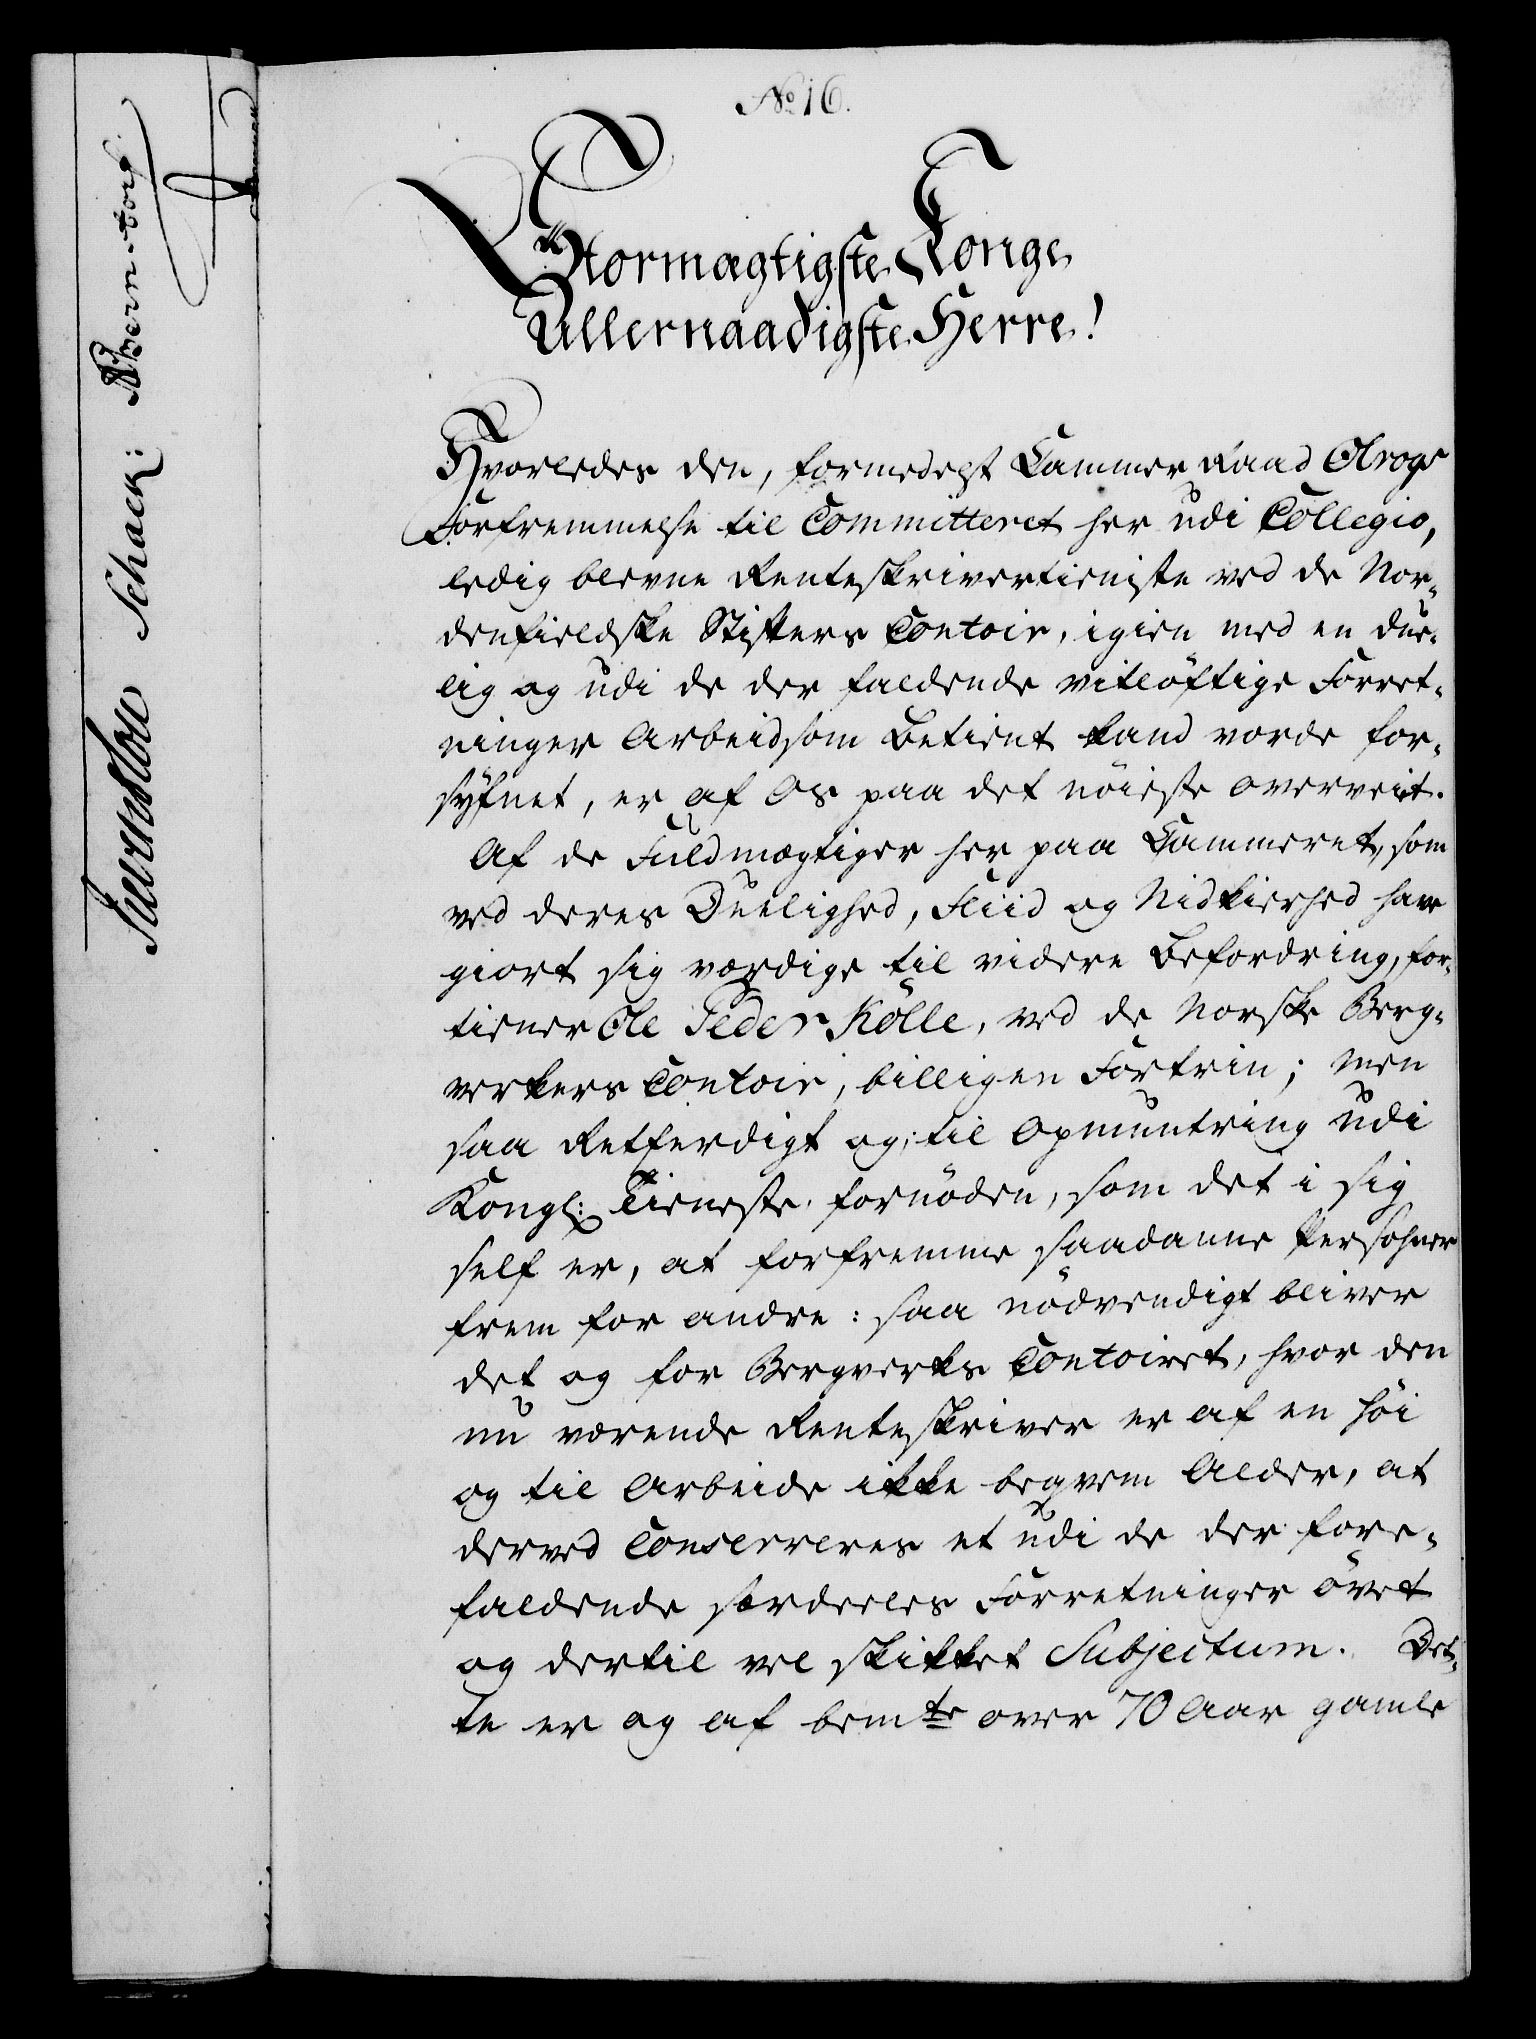 No 16.
Stormægtigste Konge
Allernaadigste Herre!
Hvorledes den, formedelst Cammer Raad Olrogs
Forfremmelse til Committeret her udi Collegio,
ledig blevne Renteskrivertieniste ved de Nor-
denfieldske Stifters Contoir, igien med en due-
lig og udi de der faldende vitløftige Forret-
ninger Arbeidsom Betient kand vorde for-
syfnet, er af Os paa det nøieste overveiet.
Af de Fuldmægtiger her paa Cammeret, som
ved deres Duelighed, Fliid og Nidkierhed have
giort sig værdige til videre Befordring, for-
tiener Ole Peder Kölle, ved de Norske Berg-
verkers Contoir, billigen Fortrin; men
saa Retferdigt og til Opmuntring udi
Kongl: Tieneste fornøden, som det i sig
self er, at forfremme saadanne Persohner
frem for andre: saa nødvendigt bliver
det og for Bergverks Contoiret, hvor den
nu værende Renteskriver er af en høi
og til Arbeide ikke beqvem Alder, at
derved Conserveres et udi de der fore-
faldende særdeeles Forretninger övet
og dertil vel skikket Subjectum. Det-
te er og af bemte over 70 Aar gamle
Schack:
Bernstorf.